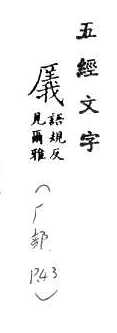 五經文字
㕒
語規反
見爾雅
(厂部 P.43)